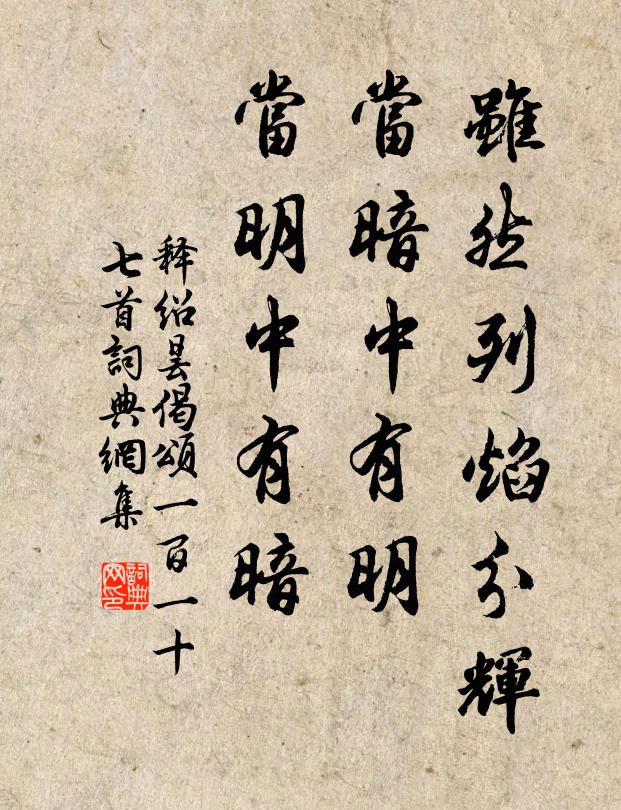 雖然列焰分輝
當暗中有明
當明中有暗
释绍昙偈頌一百一十
七首詞典網集
詞典网印